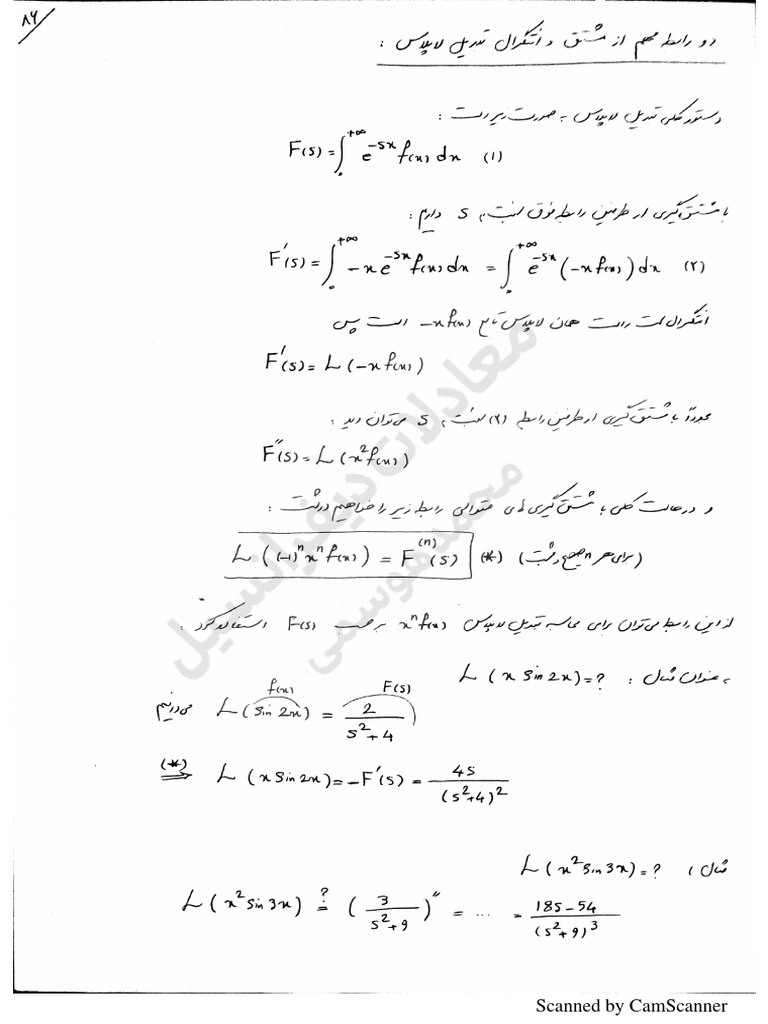 ۸۶
دو رابطه مهم از مشتق و انتگرال تبدیل لاپلاس :
دستور کلی تبدیل لاپلاس به صورت زیر است :
F(s) = ∫₀^{+∞} e^{-sx} f(x) dx (۱)
با مشتق گیری از طرفین رابطه فوق نسبت به s داریم :
F'(s) = ∫₀^{+∞} -x e^{-sx} f(x) dx = ∫₀^{+∞} e^{-sx} (-x f(x)) dx (۲)
انتگرال سمت راست همان لاپلاس تابع -x f(x) است پس
F'(s) = L(-x f(x))
مجدداً با مشتق گیری از طرفین رابطه (۲) نسبت به s می توان دید :
F''(s) = L(x² f(x))
و در حالت کلی با مشتق گیری های متوالی رابطه زیر را خواهیم داشت :
L((-1)ⁿ xⁿ f(x)) = F^{(n)}(s) (*) (برای هر n صحیح و مثبت)
از این رابطه می توان برای محاسبه تبدیل لاپلاس xⁿ f(x) بر حسب F(s) استفاده کرد :
به عنوان مثال : L(x sin 2x) = ?
f(x) F(s)
می دانیم L(sin 2x) = 2/(s²+4)
(*) ⇒ L(x sin 2x) = -F'(s) = 4s/(s²+4)²
مثال : L(x² sin 3x) = ?
L(x² sin 3x) ?= (3/(s²+9))'' = ... = (18s-54)/(s²+9)³
معادلات دیفرانسیل
محمد موسمی
Scanned by CamScanner